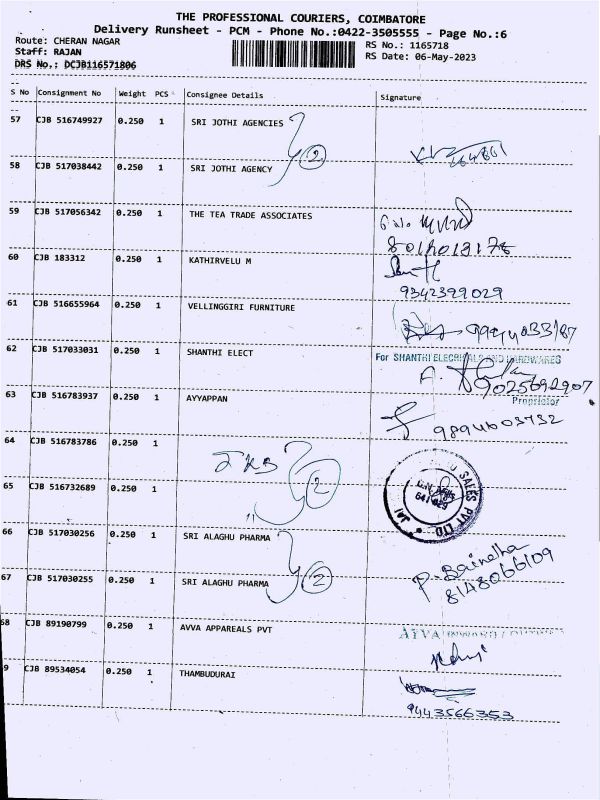 THE PROFESSIONAL COURIERS, COIMBATORE
Delivery Runsheet - PCM - Phone No.:0422-3505555 - Page No.:6
Route: CHERAN NAGAR
RS No.: 1165718
Staff: RAJAN
RS Date: 06-May-2023
DRS No.: DCJB116571806
S No Consignment No Weight PCS Consignee Details Signature
57 CJB 516749927 0.250 1 SRI JOTHI AGENCIES
2
58 CJB 517038442 0.250 1 SRI JOTHI AGENCY
59 CJB 517056342 0.250 1 THE TEA TRADE ASSOCIATES
60 CJB 183312 0.250 1 KATHIRVELU M
9342399029
61 CJB 516655964 0.250 1 VELLINGGIRI FURNITURE
62 CJB 517033031 0.250 1 SHANTHI ELECT
For SHANTHI ELECRICALS AND HARDWARES
9025692907
Proprietor
63 CJB 516783937 0.250 1 AYYAPPAN
9894603732
64 CJB 516783786 0.250 1
JKB 2
65 CJB 516732689 0.250 1
JAI SALES PVT LTD
66 CJB 517030256 0.250 1 SRI ALAGHU PHARMA
2
67 CJB 517030255 0.250 1 SRI ALAGHU PHARMA
8148066109
68 CJB 89190799 0.250 1 AVVA APPAREALS PVT
9 CJB 89534054 0.250 1 THAMBUDURAI
9443566353